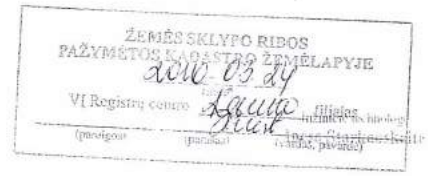 ŽEMĖS SKLYPO RIBOS
PAŽYMĖTOS KADASTRO ŽEMĖLAPYJE
2010-03-24
VĮ Registrų centro Kauno filialas
(pareigos) (parašas) (vardas, pavardė)